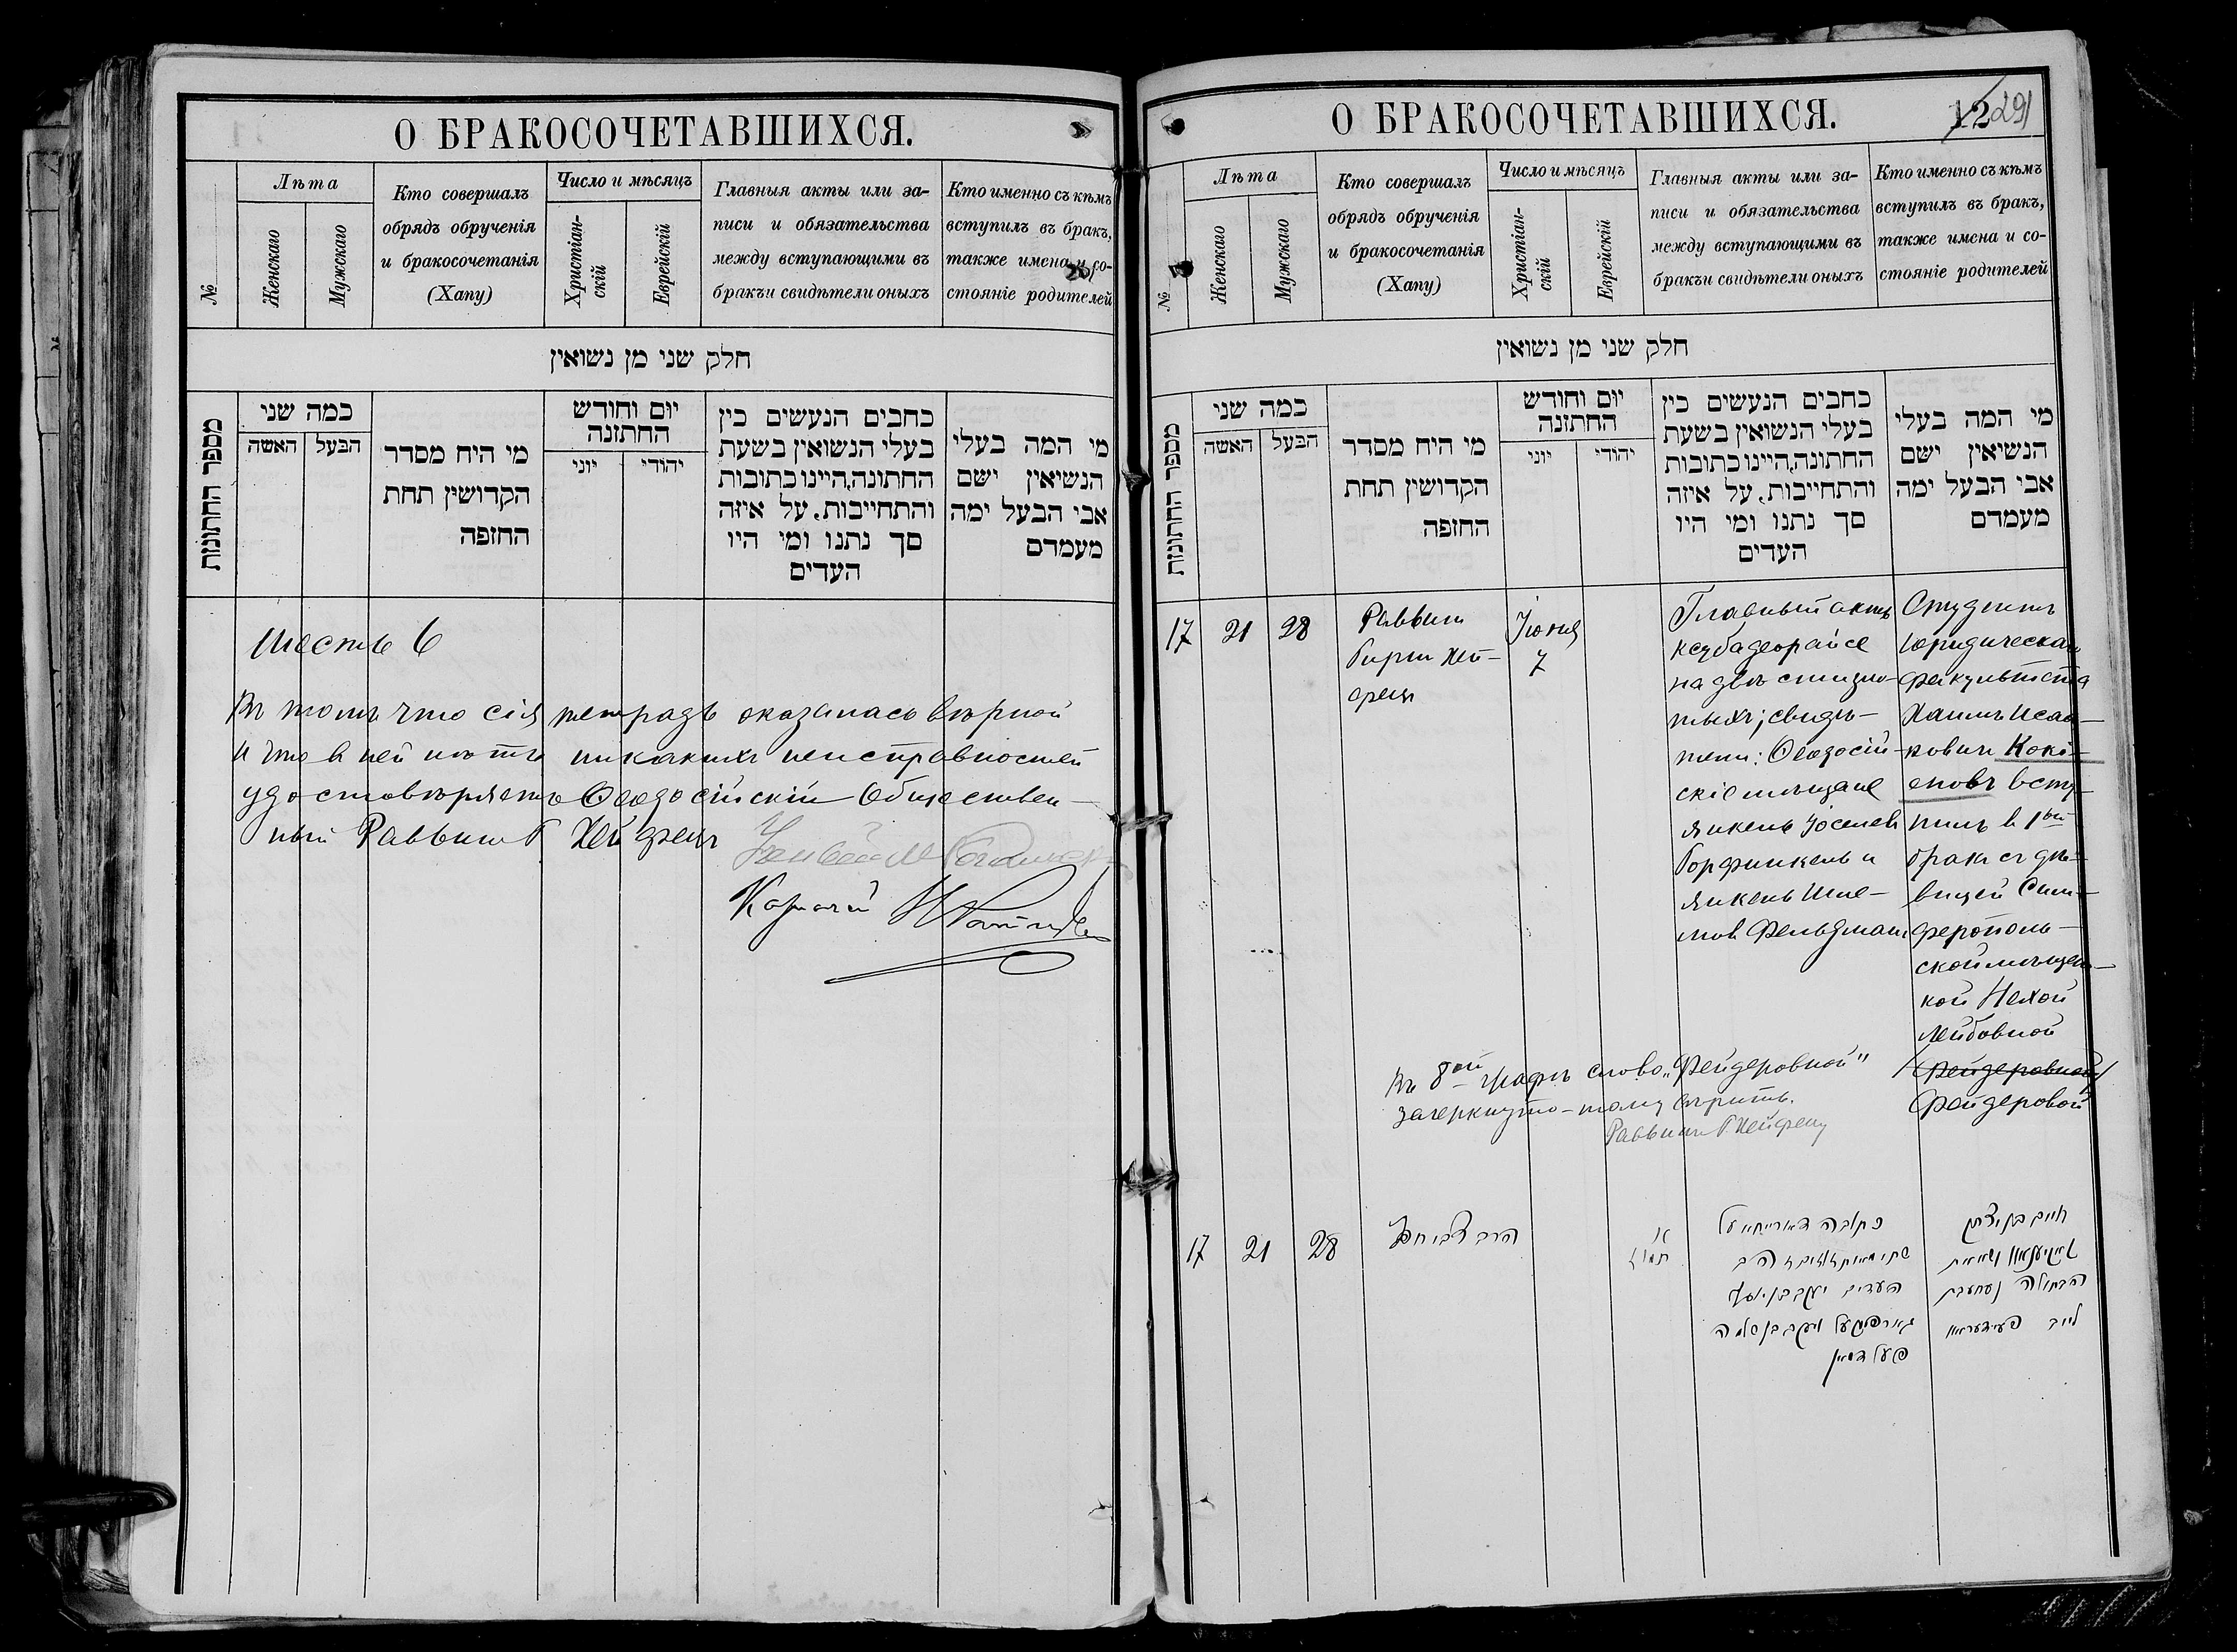 О БРАКОСОЧЕТАВШИХСЯ.
№
Лѣта
Женскаго
Мужскаго
Кто совершалъ
обрядъ обрученія
и бракосочетанія
(Хапу)
Число и мѣсяцъ
Христіан-
скій
Еврейскій
Главныя акты или за-
писи и обязательства
между вступающими въ
бракъи свидѣтели оныхъ
Кто именно съ кѣмъ
вступилъ въ бракъ,
также имена и со-
стояніе родителей
חלק שני מן נשואין
מספר החתונות
כמה שני
הבעל
האשה
מי היח מסדר
הקדושין תחת
החזפה
יום וחודש
החתזנה
יהודי
יוני
כחבים הנעשים כין
בעלי הנשואין בשעת
החתונה,היינו כתובות
והתחייבות, על איזה
סך נתנו ומי היו
העדים
מי המה בעלי
הנשיאין ישם
אבי הבעל ימה
מעמדם
Шесть 6
Въ томъ что сія тетрадь оказалась вѣрной
и что в ней нѣтъ никакихъ неисправностей
удостовѣряетъ Ѳеодосійскій Обществен-
ный Раввинъ Б Хейфецъ
Казначей
О БРАКОСОЧЕТАВШИХСЯ.
12 291
№
Лѣта
Женскаго
Мужскаго
Кто совершалъ
обрядъ обрученія
и бракосочетанія
(Хапу)
Число и мѣсяцъ
Христіан-
скій
Еврейскій
Главныя акты или за-
писи и обязательства
между вступающими въ
бракъи свидѣтели оныхъ
Кто именно съ кѣмъ
вступилъ въ бракъ,
также имена и со-
стояніе родителей
חלק שני מן נשואין
מספר החתונות
כמה שני
הבעל
האשה
מי היח מסדר
הקדושין תחת
החזפה
יום וחודש
החתזנה
יהודי
יוני
כחבים הנעשים כין
בעלי הנשואין בשעת
החתונה,היינו כתובות
והתחייבות, על איזה
סך נתנו ומי היו
העדים
מי המה בעלי
הנשיאין ישם
אבי הבעל ימה
מעמדם
17 21 28
Раввинъ
Гирш Хей-
фецъ
Іюня
7
Главный актъ
ксубадеорайсе
на двѣ
тыхъ; свидѣ-
тели: Ѳеодосій-
скіе мѣщане
Янкель Іоселев
Горфинкель и
Янкель Шле-
мов Фельдманъ
Студентъ
юридическаго
факультета
Хаимъ Исаа-
ковичъ Кокі-
еновъ всту-
пилъ в 1ый
бракъ съ дѣ-
вицей Сим-
ферополь-
ской мѣщан-
кой Нехой
Лейбовной
Фейдеровной
Фейдеровой
Въ 8ой графѣ слово „Фейдеровной"
зачеркнуто-тому вѣрить.
Раввинъ Г Хейфецъ
17 21 28
הרב
א
תמוז
כתובה דאורייתא על
שתי מאות זהב
העדים יעקב בן יוסף
גארפינקעל ויעקב בן שלמה
פעלדמאן
חיים בן יצחק
הבתולה נעחע בת
לייב